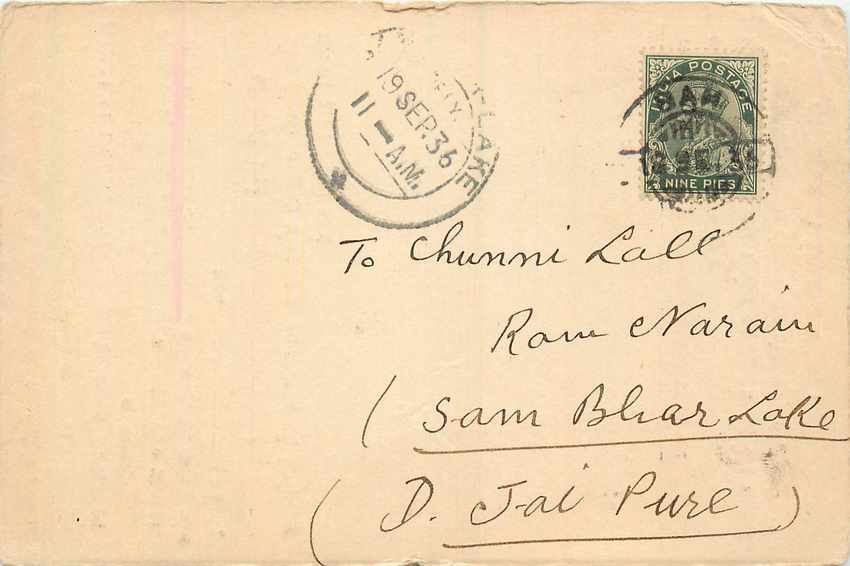 INDIA POSTAGE
NINE PIES
LAKE
19 SEP. 36
11 - A.M.
To Chunni Lall
Ram Narain
( Sam Bhar Lake
( D. Jai Pure )